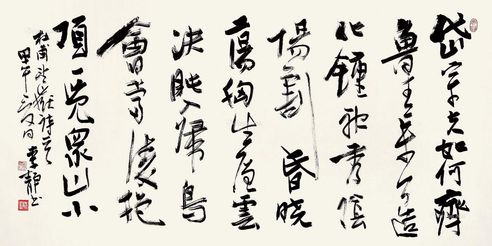 岱宗夫如何齊
魯青未了造
化鍾神秀陰
陽割昏曉
蕩胸生層雲
決眦入歸鳥
會當凌絕
頂一覽眾山小
杜甫望嶽詩
甲午 李靜書